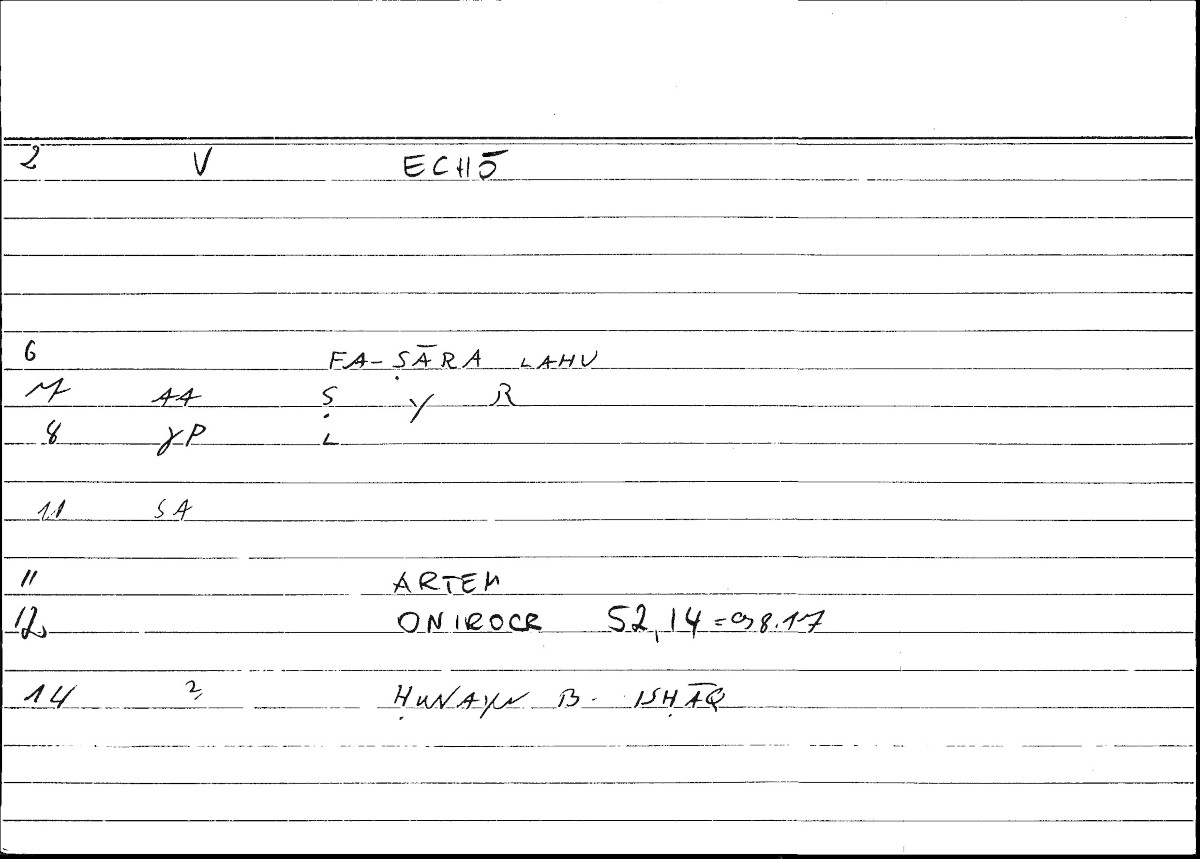 2 V ECHŌ
6 FA-ṢĀRA LAHU
7 AA Ṣ Y R
8 γP L
10 SA
11 ARTEM
12 ONIROCR 52,14 = 98.17
14 2 ḤUNAYN B. ISḤĀQ